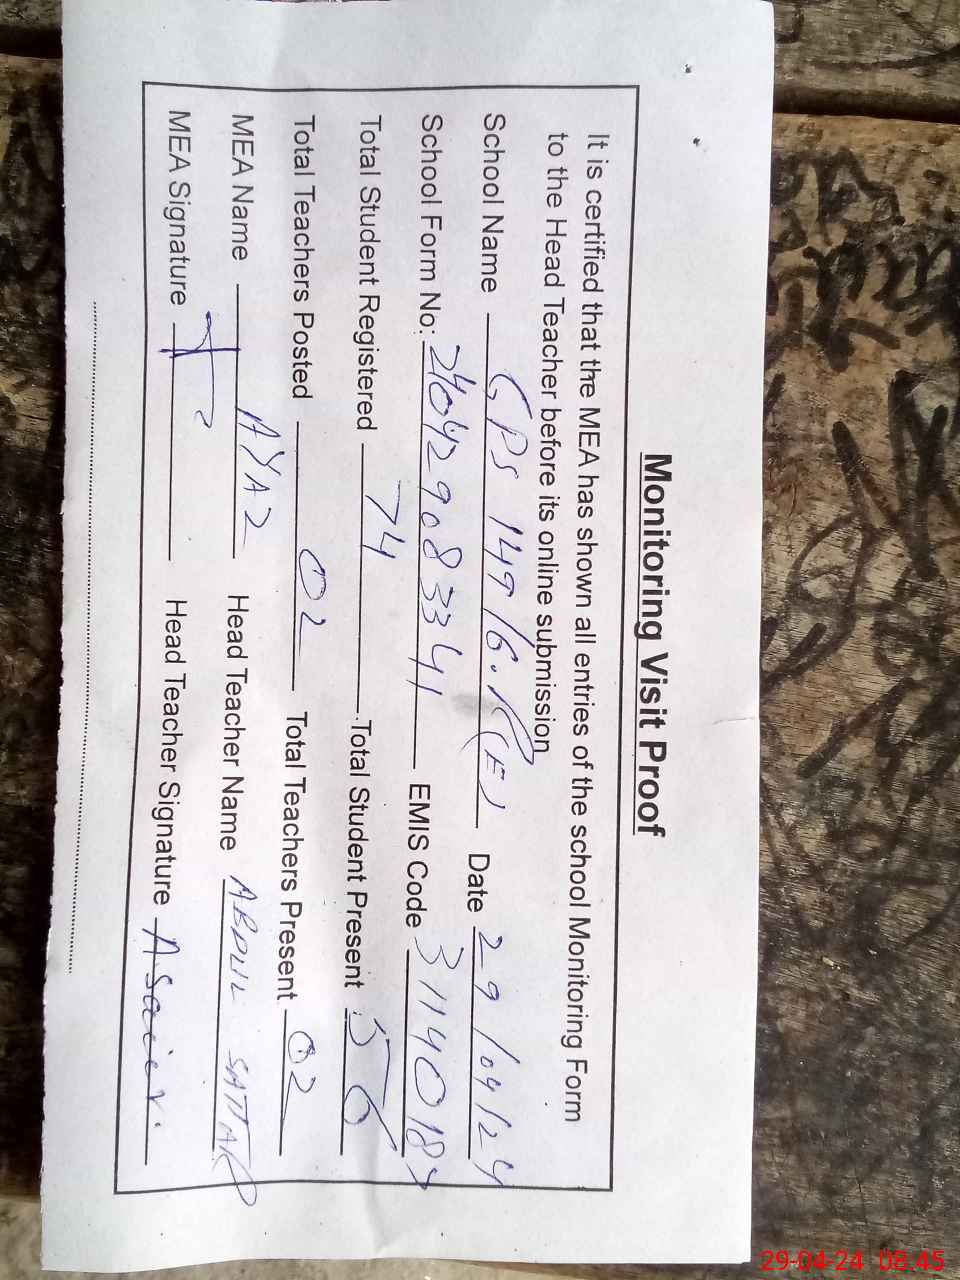 Monitoring Visit Proof
It is certified that the MEA has shown all entries of the school Monitoring Form
to the Head Teacher before its online submission
School Name GPS 149/6.R(E) Date 29/04/24
School Form No: 24042908 3341 EMIS Code 31140187
Total Student Registered 74 Total Student Present 56
Total Teachers Posted 02 Total Teachers Present 02
MEA Name AYAZ Head Teacher Name ABDUL SATTAR
MEA Signature Head Teacher Signature
29-04-24 08:45